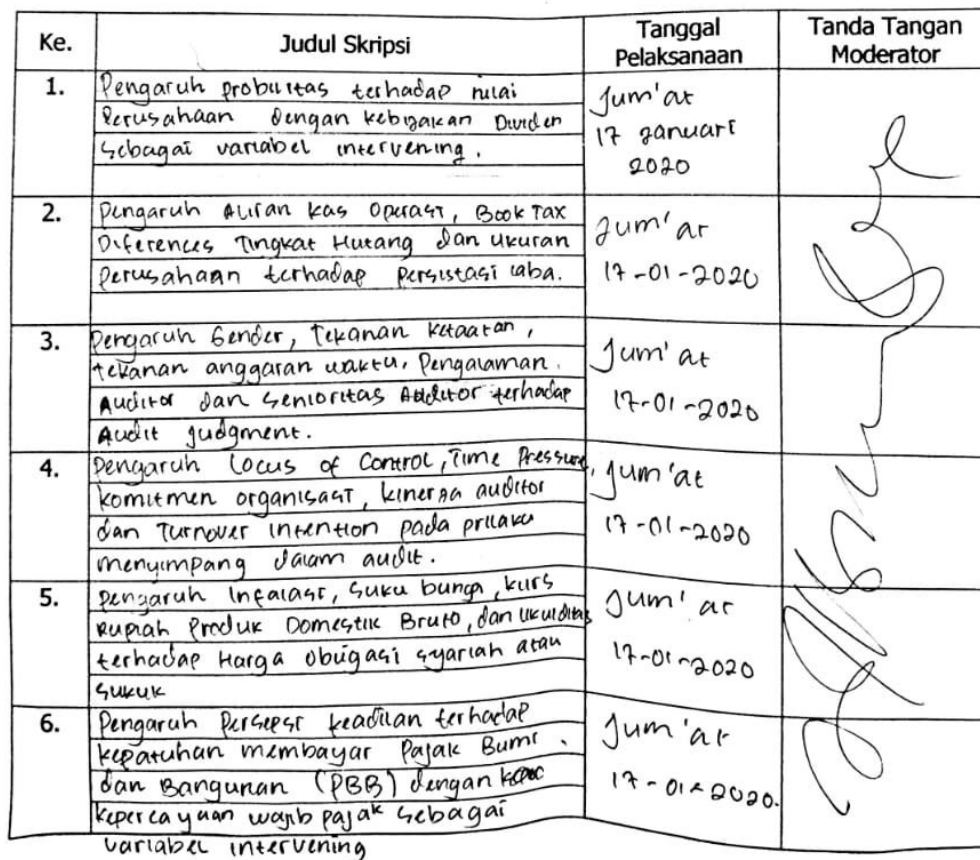 Ke.
Judul Skripsi
Tanggal
Pelaksanaan
Tanda Tangan
Moderator
1.
Pengaruh probilitas terhadap nilai
Perusahaan dengan kebijakan Dividen
sebagai variabel intervening.
Jum'at
17 Januari
2020
2.
Pengaruh Aliran kas Operasi, Book Tax
Diferences Tingkat Hutang dan ukuran
Perusahaan terhadap persistasi laba.
Jum'at
17-01-2020
3.
Pengaruh Gender, Tekanan ketaatan,
tekanan anggaran waktu, Pengalaman
Auditor dan senioritas Auditor terhadap
Audit Judgment.
Jum'at
17-01-2020
4.
Pengaruh Locus of Control, Time Pressure,
komitmen organisasi, kinerja auditor
dan Turnover Intention pada prilaku
menyimpang dalam audit.
Jum'at
17-01-2020
5.
Pengaruh Infalasi, suku bunga, kurs
Rupiah Produk Domestik Bruto, dan likuiditas
terhadap Harga obligasi syariah atau
sukuk
Jum'at
17-01-2020
6.
Pengaruh Persepsi keadilan terhadap
kepatuhan membayar Pajak Bumi
dan Bangunan (PBB) dengan
kepercayaan wajib pajak sebagai
variabel intervening
Jum'at
17-01-2020.